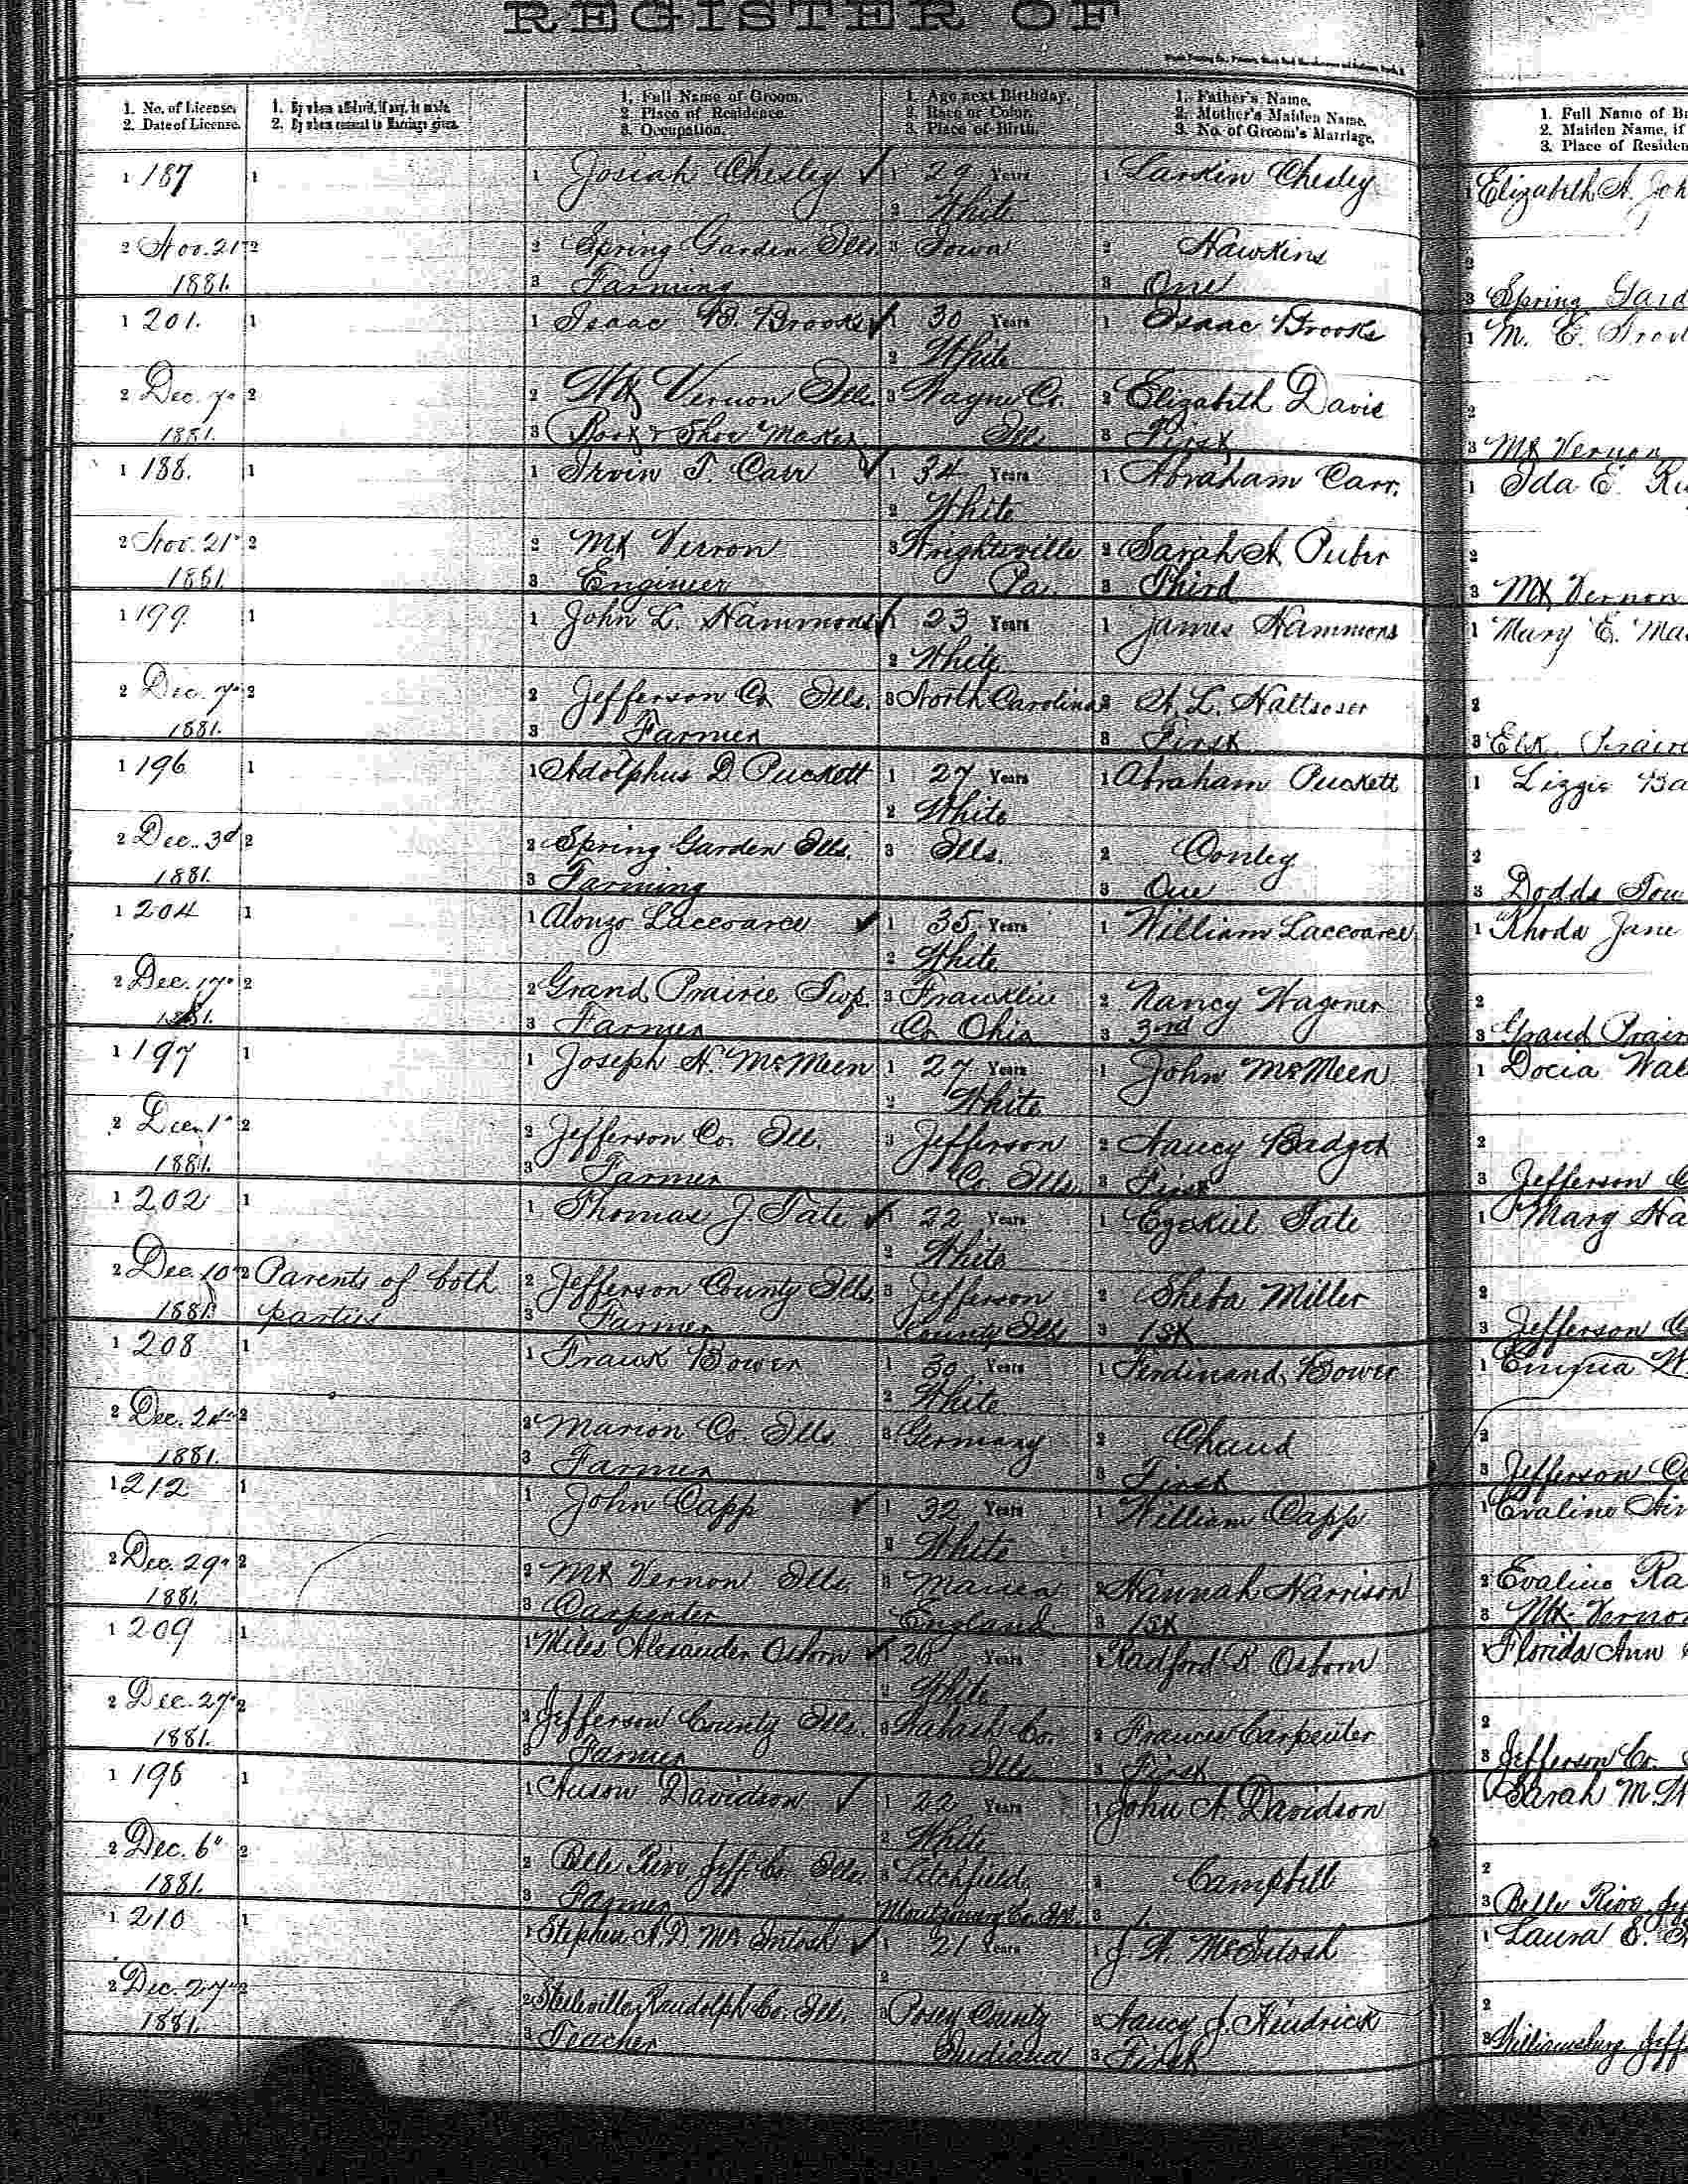 REGISTER OF
1. No. of License.
2. Date of License.
1. By whom affidavit, if any, is made.
2. By whom consent to Marriage given.
1. Full Name of Groom.
2. Place of Residence.
3. Occupation.
1. Age next Birthday.
2. Race or Color.
3. Place of Birth.
1. Father's Name.
2. Mother's Maiden Name.
3. No. of Groom's Marriage.
1. Full Name of
2. Maiden Name, if
3. Place of Residen
1 187 1 1 Josiah Chesley ✓ 1 29 Years 1 Larkin Chesley 1 Elizabeth A. Joh
2 White
2 Nov. 21st 2 2 Spring Garden Ills. 3 Iowa 2 Hawkins 2
1881. 3 Farming 3 One 3 Spring Gard
1 201. 1 1 Isaac B. Brooks ✓ 1 30 Years 1 Isaac Brooks 1 M. E.
2 White
2 Dec. 7th 2 2 Mt Vernon Ills. 3 Wayne Co. 2 Elizabeth Davis 2
1881. 3 Boot & Shoe Maker Ill. 3 First 3 Mt Vernon
1 188. 1 1 Irvin T. Carr ✓ 1 34 Years 1 Abraham Carr. 1 Ida E.
2 White
2 Nov. 21st 2 2 Mt Vernon 3 Wrightsville 2 Sarah A. 2
1881. 3 Engineer Pa. 3 Third 3 Mt Vernon
1 199 1 1 John L. Hammons ✓ 1 23 Years 1 James Hammons 1 Mary E. Ma
2 White
2 Dec. 7th 2 2 Jefferson Co Ills. 3 North Carolina 2 A. L. 2
1881. 3 Farmer 3 First 3 Elk Prairi
1 196 1 1 Adolphus D. Puckett 1 27 Years 1 Abraham Puckett 1 Lizzie Ba
2 White
2 Dec. 3d 2 2 Spring Garden Ills. 3 Ills. 2 Conley 2
1881. 3 Farming 3 One 3 Dodds Tow
1 204 1 1 Alonzo ✓ 1 35 Years 1 William 1 Rhoda Jane
2 White
2 Dec. 17th 2 2 Grand Prairie Twp. 3 Franklin 2 Nancy Wagoner 2
1881. 3 Farmer Co. Ohio 3 3rd 3 Grand Prair
1 197 1 1 Joseph H. McMeen 1 27 Years 1 John McMeen 1 Docia Wal
2 White
2 Dec. 1st 2 2 Jefferson Co. Ill. 3 Jefferson 2 Nancy Badget 2
1881. 3 Farmer Co. Ills. 3 First 3 Jefferson C
1 202 1 1 Thomas J. Tate ✓ 1 22 Years 1 Ezekiel Tate 1 Mary Ha
2 White
2 Dec. 10th 2 Parents of both 2 Jefferson County Ills. 3 Jefferson 2 Sheba Miller 2
1881. parties 3 Farmer County Ills 3 1st 3 Jefferson C
1 208 1 1 Frank Bower 1 30 Years 1 Ferdinand Bower 1 Emma
2 White
2 Dec. 24th 2 2 Marion Co. Ills. 3 Germany 2 Chaud 2
1881. 3 Farmer 3 First 3 Jefferson Co
1 212 1 1 John Capp ✓ 1 32 Years 1 William Capp 1 Evaline
2 White
2 Dec. 29th 2 2 Mt Vernon Ills. 3 2 Hannah Harrison 2 Evaline Ra
1881. 3 Carpenter England. 3 1st 3 Mt. Vernon
1 209 1 1 Miles Alexander Osborn ✓ 1 26 Years 1 Radford B. Osborn 1 Florida Ann
2 White
2 Dec. 27th 2 2 Jefferson County Ills. 3 Wabash Co. 2 Frances Carpenter 2
1881. 3 Farmer Ills. 3 First 3 Jefferson Co.
1 198 1 1 Anson Davidson ✓ 1 22 Years 1 John A. Davidson 1 Sarah M.
2 White
2 Dec. 6th 2 2 Belle Rive Jeff. Co. Ills. 3 Litchfield 2 Campbell 2
1881. 3 Farmer Montgomery Co. Ill. 3 1 3 Belle Rive Je
1 210 1 1 Stephen A. D. McIntosh ✓ 1 21 Years 1 J. A. McIntosh 1 Laura E.
2
2 Dec. 27th 2 2 Steeleville, Randolph Co. Ill. 3 Posey County 2 Nancy J. Hendrick 2
1881. 3 Teacher Indiana 3 First 3 Williamsburg Jeff